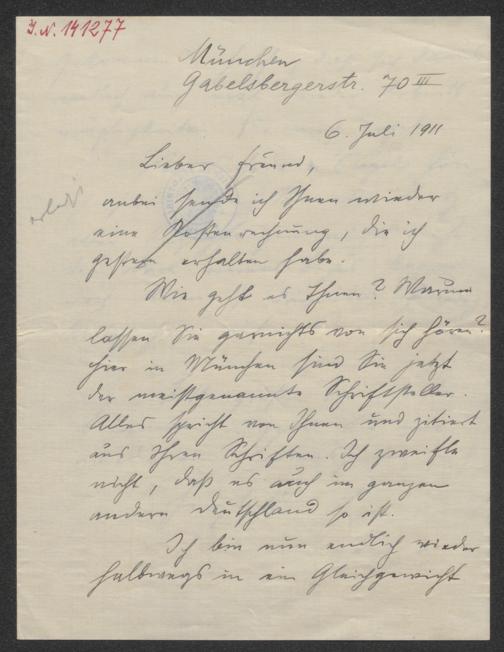 J.N. 141277
München
Gabelsbergerstr. 70 III
6. Juli 1911
Lieber Freund,
erledigt
anbei sende ich Ihnen wieder
eine Kostenrechnung, die ich
gestern erhalten habe.
Wie geht es Ihnen? Warum
lassen Sie garnichts von sich hören?
hier in München sind Sie jetzt
der meistgenannte Schriftsteller.
Alles spricht von Ihnen und zitiert
aus Ihren Schriften. Ich zweifle
nicht, daß es auch im ganzen
andern Deutschland so ist.
Ich bin nun endlich wieder
halbwegs in ein Gleichgewicht